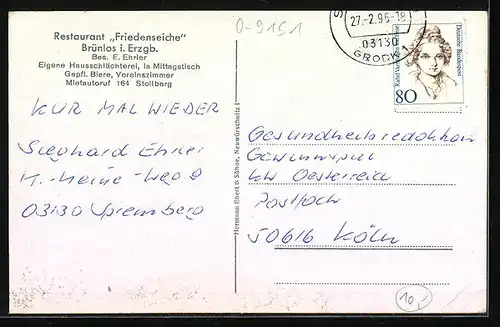 Restaurant „Friedenseiche"
Brünlos i. Erzgb.
Bes. E. Ehrler
Eigene Hausschlächterei, la Mittagstisch
Gepfl. Biere, Vereinszimmer
Mietautoruf 164 Stollberg
KUR MAL WIEDER
Sieghard
H.-Heine-Weg 9
03130 Spremberg
Hermann Ebert & Söhne, Neuwürschnitz i.
O-9151
27.-2.96-18
03130
GRODK 1
Deutsche Bundespost
Rahel Varnhagen
80
Gesundheitsredaktion
Gewinnspiel
KW Oesterreich
Postfach
50616 Köln
10,-